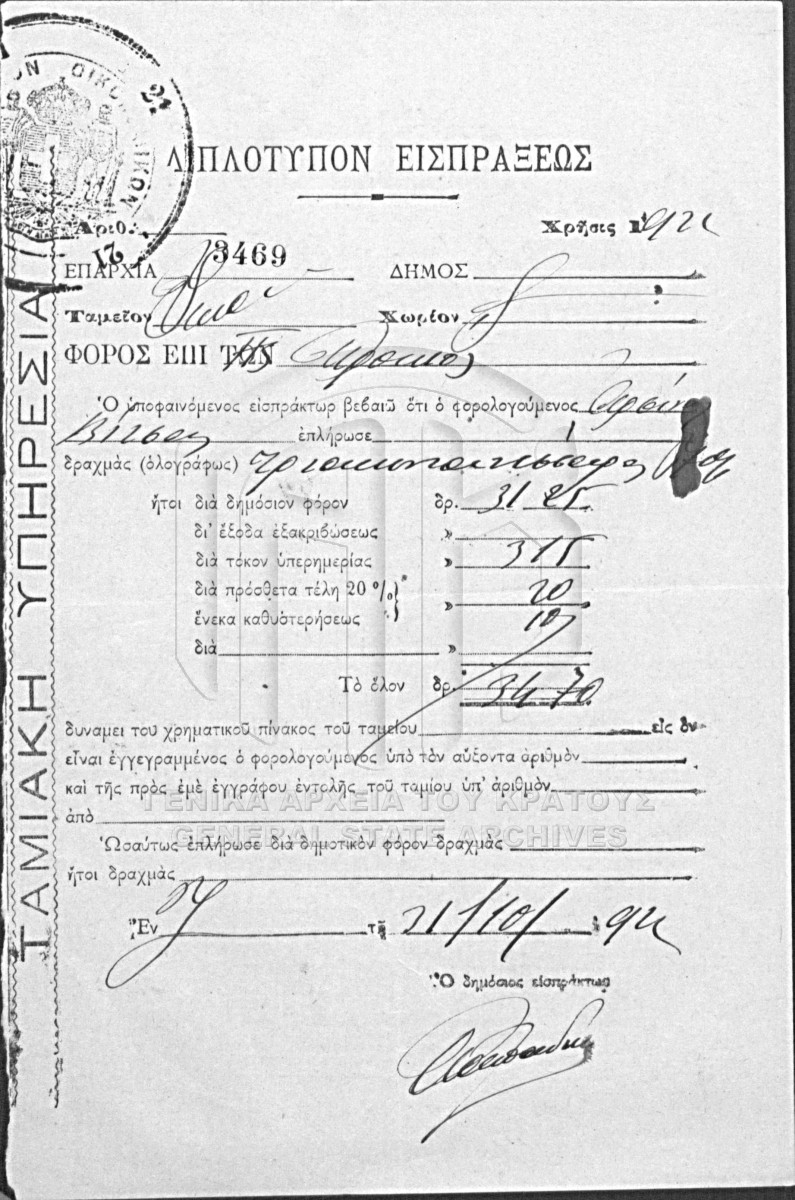 ΟΙΚΟΝΟΜΙΚΩΝ
21
ΔΙΠΛΟΤΥΠΟΝ ΕΙΣΠΡΑΞΕΩΣ
Ἀριθ. 3469
Χρῆσις 192
ΕΠΑΡΧΙΑ
ΔΗΜΟΣ
Ταμεῖον
Χωρίον
ΦΟΡΟΣ ΕΠΙ ΤΩΝ
Ὁ ὑποφαινόμενος εἰσπράκτωρ βεβαιῶ ὅτι ὁ φορολογούμενος
ἐπλήρωσε
δραχμὰς (ὁλογράφως)
ἤτοι διὰ δημόσιον φόρον δρ. 31 25
δι' ἔξοδα ἐξακριβώσεως »
διὰ τόκον ὑπερημερίας » 315
διὰ πρόσθετα τέλη 20 % » 20
ἕνεκα καθυστερήσεως 10
διὰ »
Τὸ ὅλον δρ. 34 70
δυνάμει τοῦ χρηματικοῦ πίνακος τοῦ ταμείου εἰς ὃν
εἶναι ἐγγεγραμμένος ὁ φορολογούμενος ὑπὸ τὸν αὔξοντα ἀριθμὸν
καὶ τῆς πρὸς ἐμὲ ἐγγράφου ἐντολῆς τοῦ ταμίου ὑπ' ἀριθμὸν
ἀπὸ
ΓΕΝΙΚΑ ΑΡΧΕΙΑ ΤΟΥ ΚΡΑΤΟΥΣ
GENERAL STATE ARCHIVES
Ὡσαύτως ἐπλήρωσε διὰ δημοτικὸν φόρον δραχμὰς
ἤτοι δραχμὰς
Ἐν τῇ 21/10/ 92
Ὁ δημόσιος εἰσπράκτωρ
ΤΑΜΙΑΚΗ ΥΠΗΡΕΣΙΑ